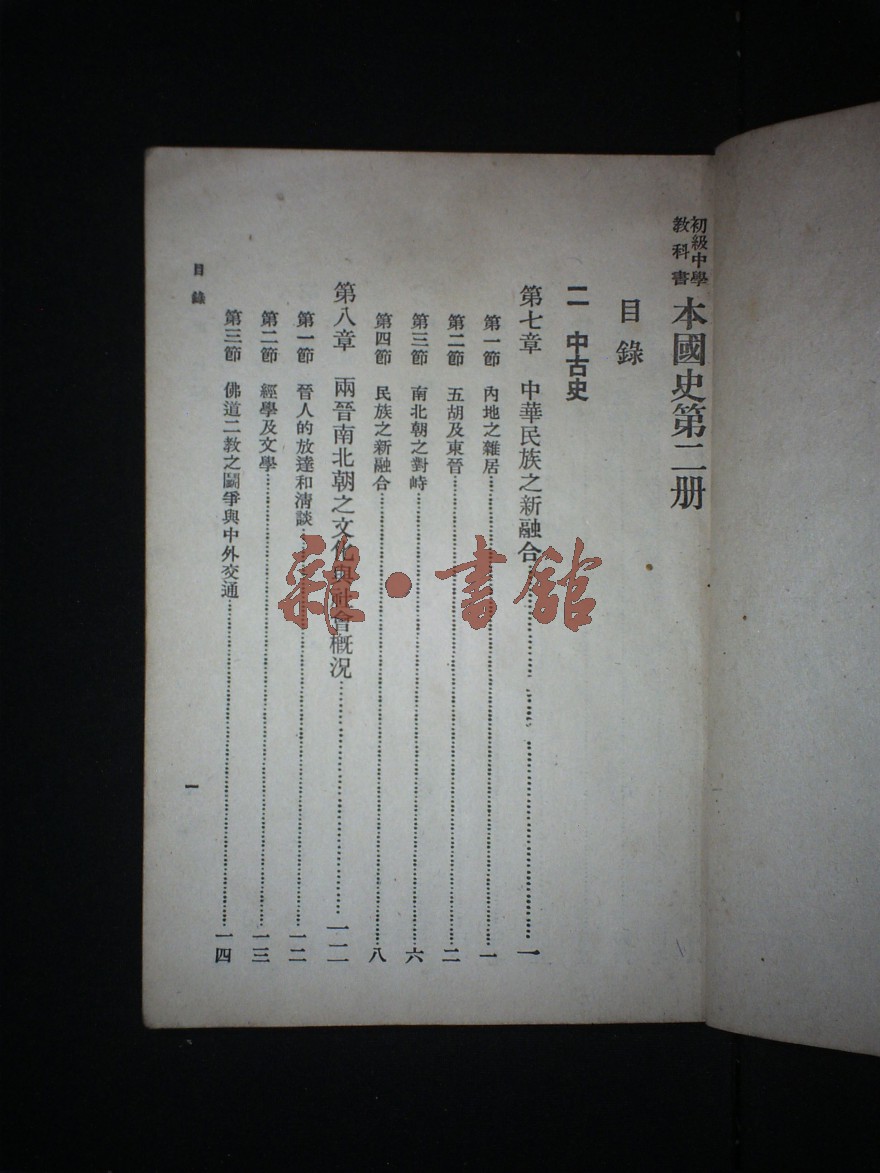 初級中學
教科書
本國史第二册
目錄
二 中古史
第七章 中華民族之新融合……一
第一節 內地之雜居……一
第二節 五胡及東晉……二
第三節 南北朝之對峙……六
第四節 民族之新融合……八
第八章 兩晉南北朝之文化與社會概況……一二
第一節 晉人的放達和淸談……一二
第二節 經學及文學……一三
第三節 佛道二教之鬭爭與中外交通……一四
目錄
一
雜·書館